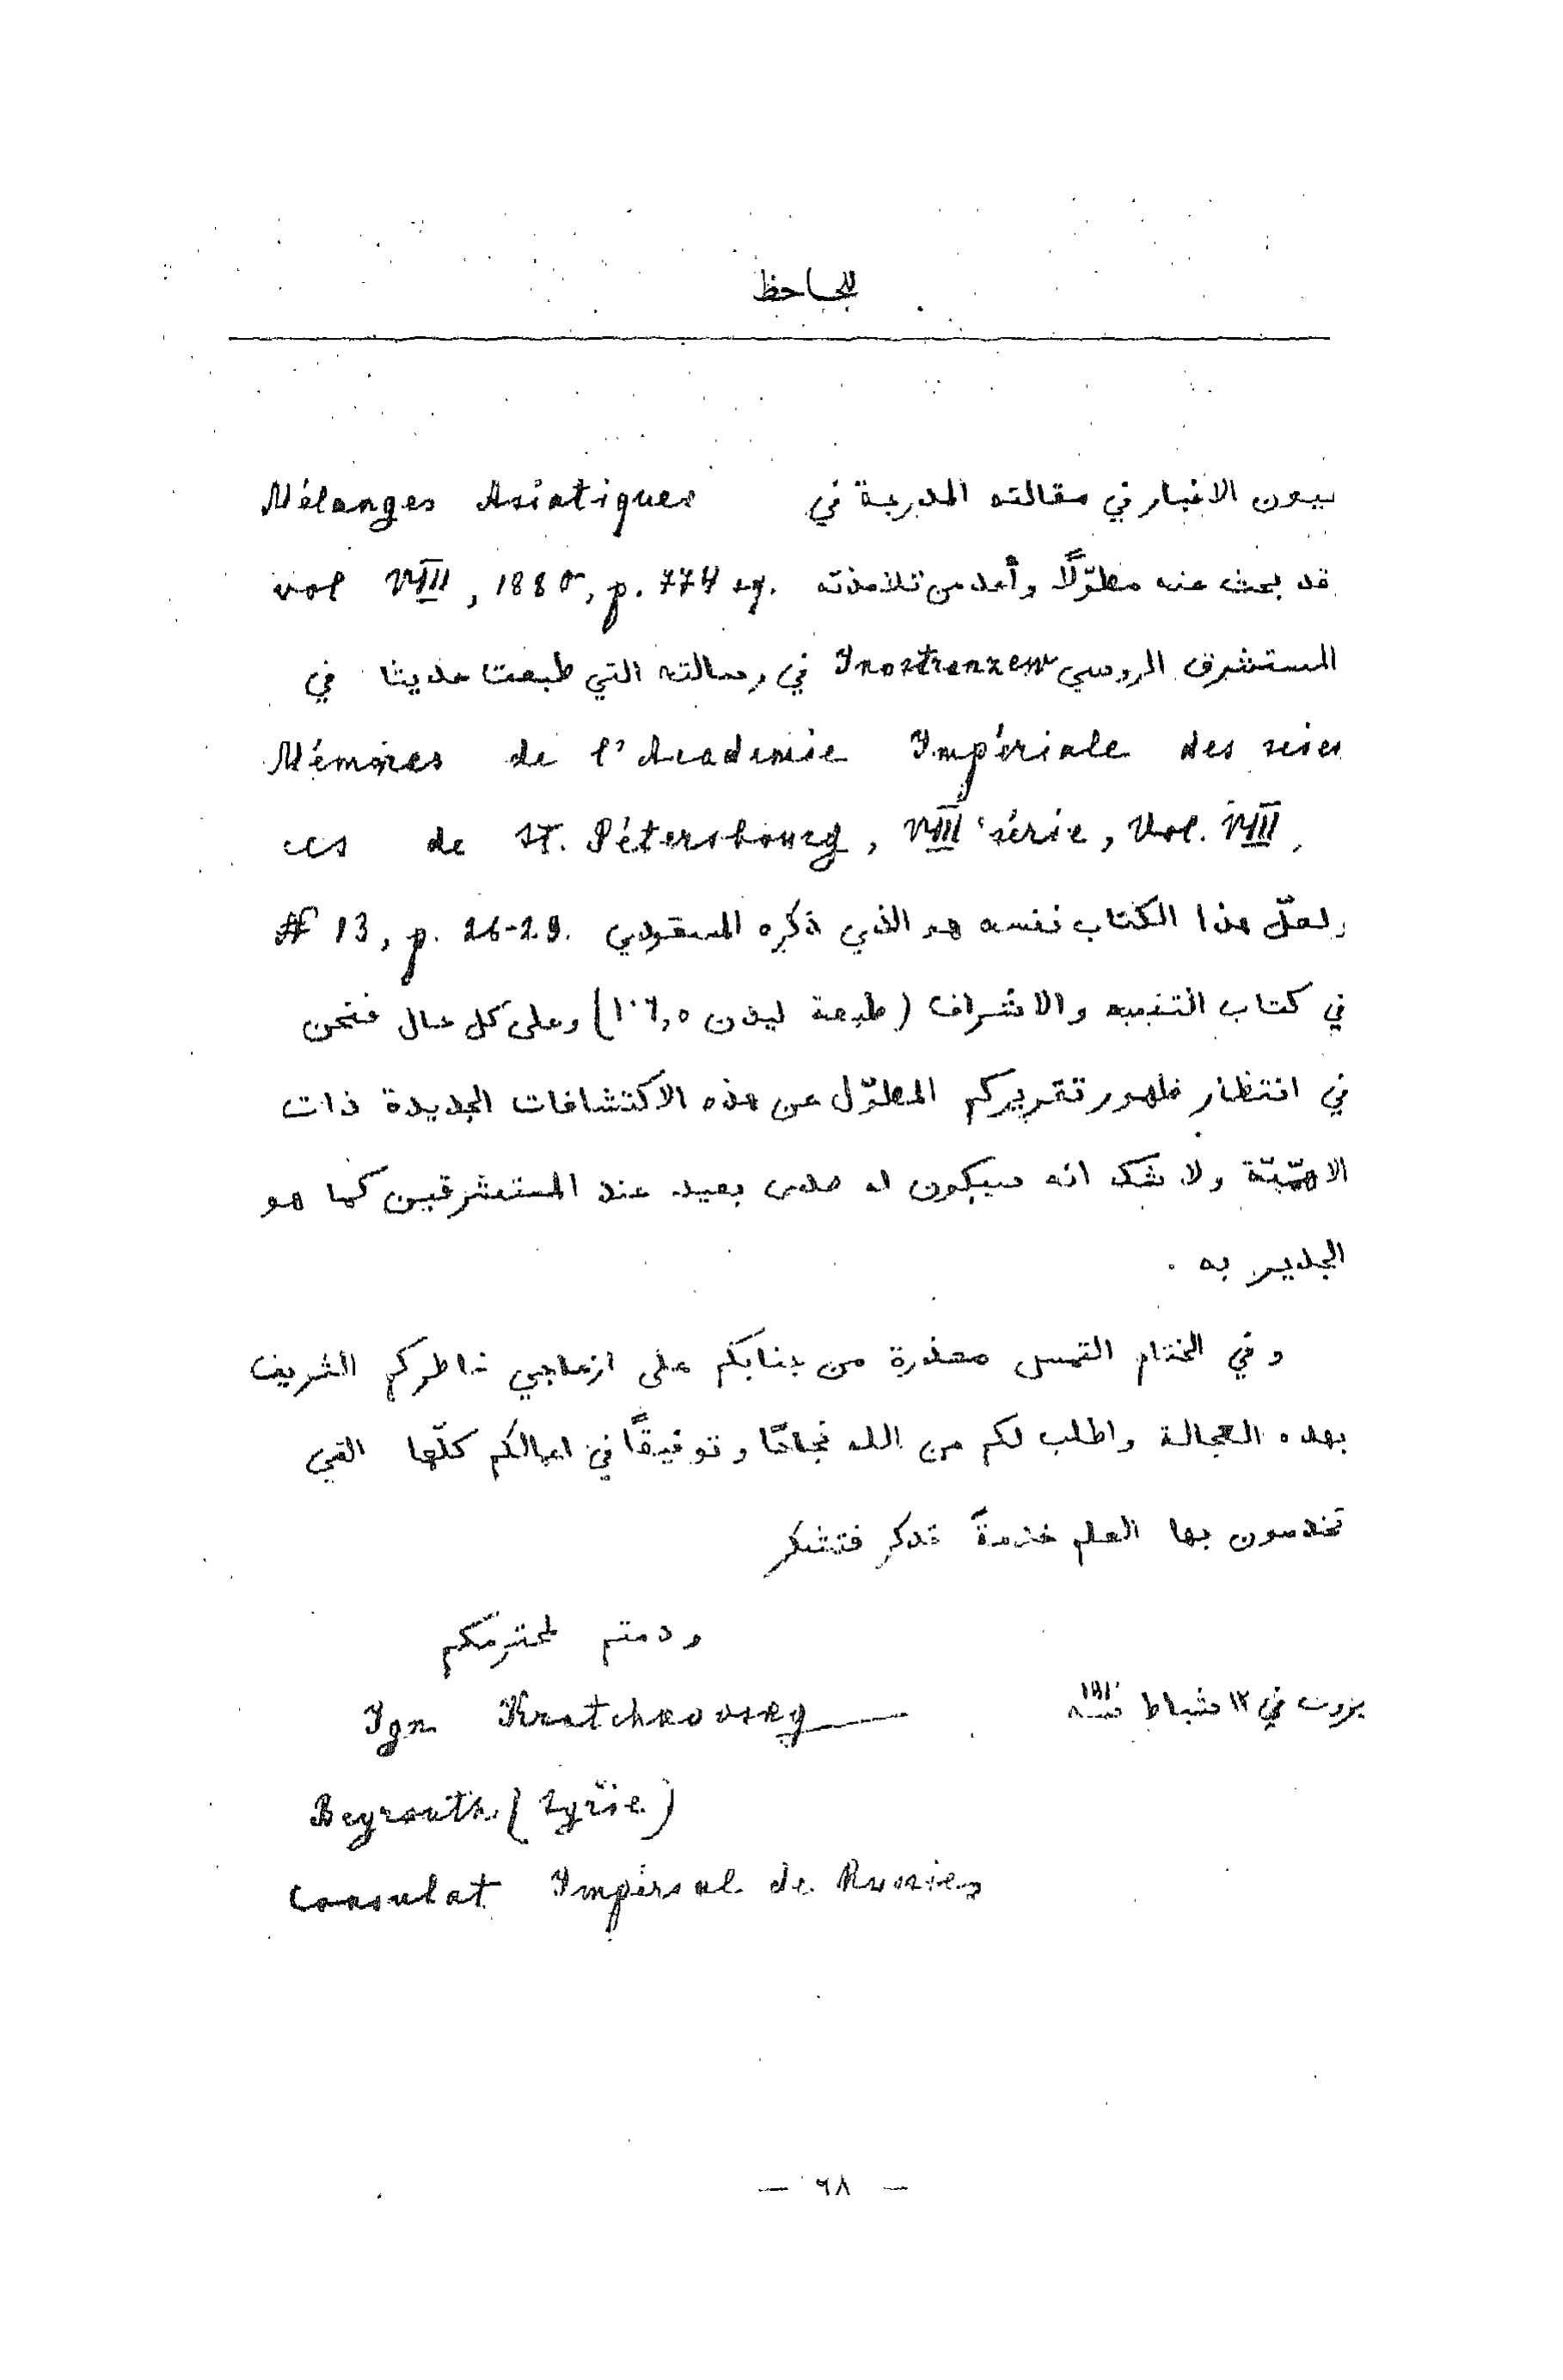 للجاحظ
عيون الاخبار في مقالته المدرجة في Mélanges Asiatiques
vol VIII, 1880, p. 774 sq. قد بحث عنه مطوّلًا وأحد من تلامذته
المستشرق الروسي Inostranzew في رسالته التي طبعت حديثا في
Mémoires de l'Academie Impériale des scien
ces de St. Pétersbourg, VIII série, Vol. VIII,
№ 13, p. 26-29. ولعلّ هذا الكتاب نفسه هو الذي ذكره المسعودي
في كتاب التنبيه والاشراف (طبعة ليدن) وعلى كل حال فنحن
في انتظار ظهور تقريركم المطوّل عن هذه الاكتشافات الجديدة ذات
الاهمّيّة ولا شك انه سيكون له صدى بعيد عند المستشرقين كما هو
الجدير به .
وفي الختام التمس معذرة من جنابكم على ازعاجي خاطركم الشريف
بهذه العجالة واطلب لكم من الله نجاحًا وتوفيقًا في اعمالكم كلّها التي
تخدمون بها العلم خدمةً تذكر فتشكر
ودمتم لمحترمكم
بيروت في ١٢ شباط سنة ١٩١٠ Ign Kratchkovsky
Beyrouth (Syrie)
Consulat Impérial de Russie
— ٦٨ —